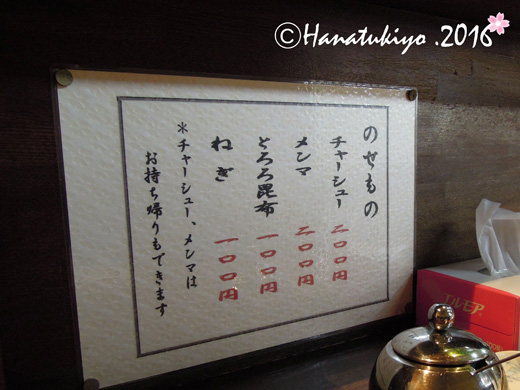 ©Hanatukiyo .2016
のせもの
チャーシュー 二〇〇円
メンマ 二〇〇円
とろろ昆布 一〇〇円
ねぎ 一〇〇円
＊チャーシュー、メンマは
お持ち帰りもできます
エルモア